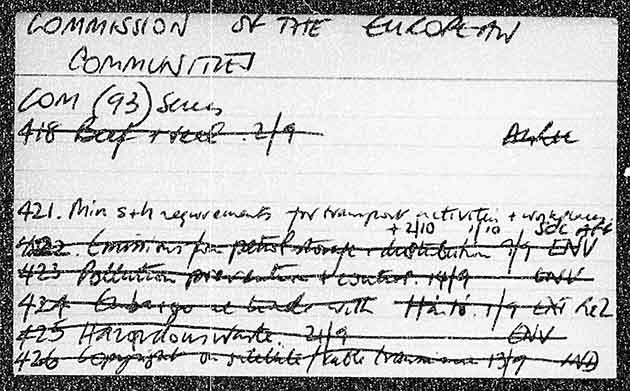 COMMISSION of THE EUROPEAN
COMMUNITIES
COM (93) Series
418 Beef + veal . 2/9
421. Min s+h requirements for transport activities + workplaces
+ 2/10 1/10 SOC Aff
422. Emissions from petrol storage + distribution 7/9 ENV
423 Pollution prevention + control. 14/9 ENV
424 Embargo re trade with Haiti. 1/9 EXT Rel
425 Hazardous waste. 21/9 ENV
426 Copyright on satellite/cable 13/9 IND